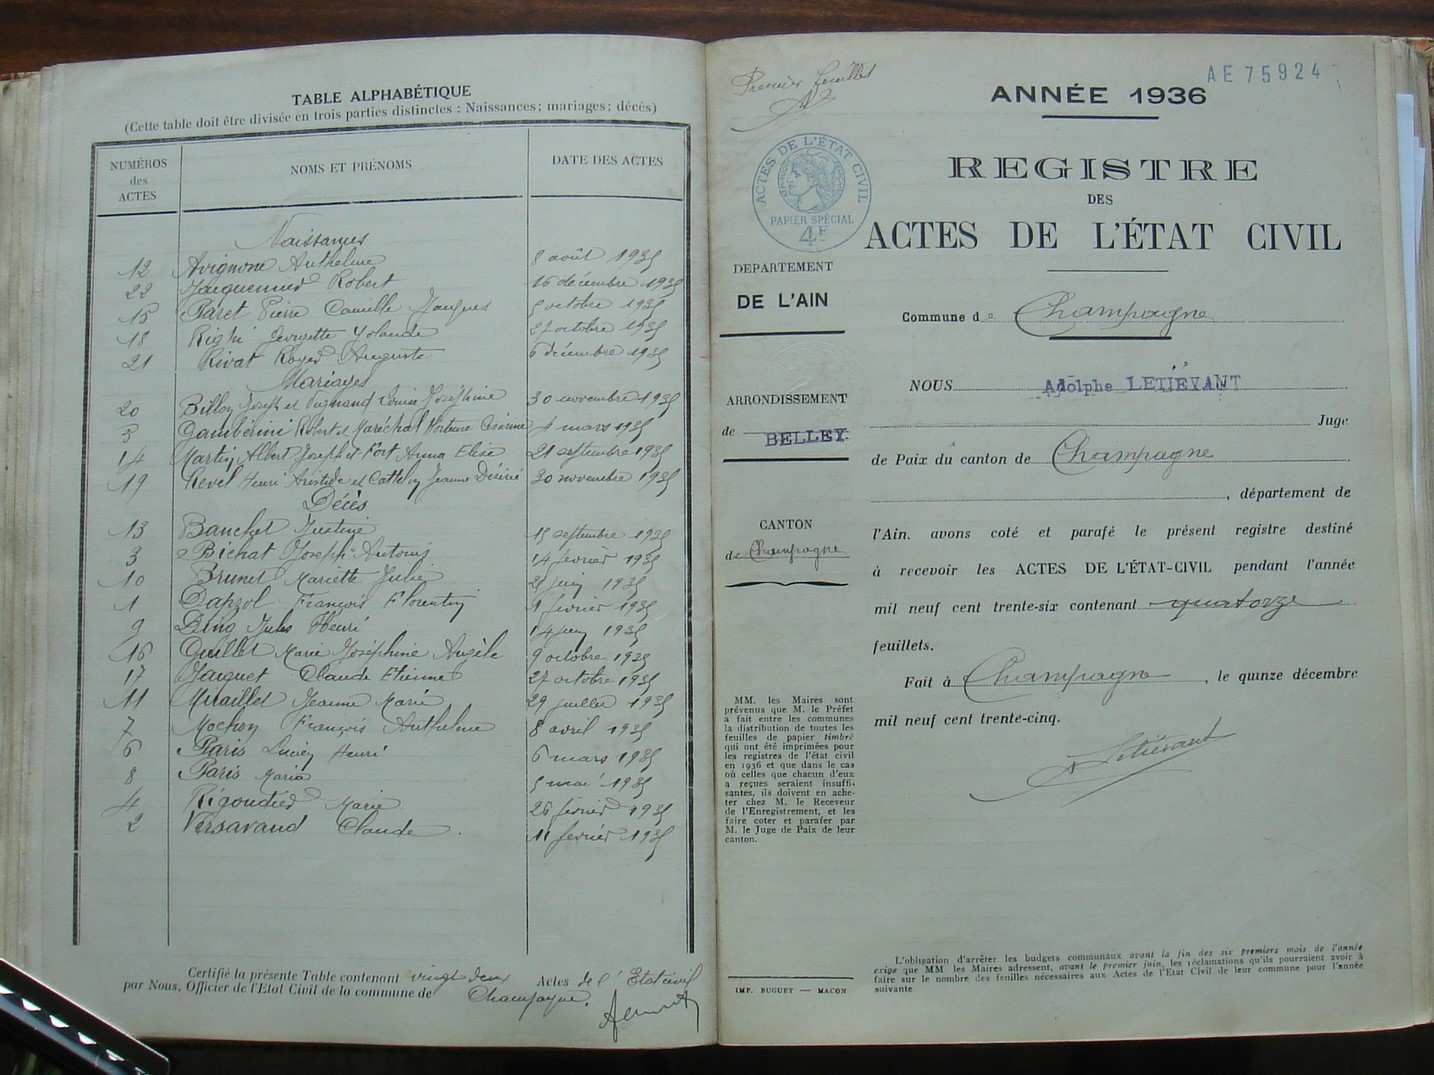 TABLE ALPHABÉTIQUE
(Cette table doit être divisée en trois parties distinctes : Naissances; mariages; décés)
NUMÉROS des ACTES
NOMS ET PRÉNOMS
DATE DES ACTES
Naissances
12 Avignon Anthelme 8 août 1935
22 Jacquemier Robert 16 décembre 1935
15 Paret Pierre Camille Jacques 5 octobre 1935
18 Righi Georgette Yolande 27 octobre 1935
21 Rivat Roger Auguste 6 décembre 1935
Mariages
20 Billon Joseph et Louise Joséphine 30 novembre 1935
5 Gamberini Robert et Maréchal Hortense 4 mars 1935
14 Martin Albert Joseph et Fort Anna Elise 21 septembre 1935
19 Revel Henri Aristide et Cattelin Jeanne Désirée 30 novembre 1935
Décès
13 Banchet Justine 15 septembre 1935
3 Bichat Joseph Antoine 14 février 1935
10 Brunet Mariette Julie juin 1935
1 François Florentin 1 février 1935
9 Jules Henri 14 juin 1935
16 Guillet Marie Joséphine Angèle 9 octobre 1935
17 Jacquet Claude Etienne 27 octobre 1935
11 Miraillet Jeanne Marie 29 juillet 1935
7 Mochon François Anthelme 8 avril 1935
6 Paris Lucien Henri 6 mars 1935
8 Paris Maria 5 mai 1935
4 Rigoudied Marie 26 février 1935
2 Versavaud Claude 11 février 1935
Certifié la présente Table contenant vingt deux Actes de l'Etat civil
par Nous, Officier de l'Etat Civil de la commune de Champagne.
Premier feuillet
AE 75924
ANNÉE 1936
ACTES DE L'ÉTAT CIVIL
PAPIER SPÉCIAL
4F
REGISTRE
DES
ACTES DE L'ÉTAT CIVIL
DEPARTEMENT
DE L'AIN
Commune de Champagne
NOUS Adolphe LETIÉVANT
ARRONDISSEMENT
de BELLEY
Juge
de Paix du canton de Champagne
, département de
CANTON
de Champagne
l'Ain. avons coté et parafé le présent registre destiné
à recevoir les ACTES DE L'ÉTAT-CIVIL pendant l'année
mil neuf cent trente-six contenant quatorze
feuillets.
Fait à Champagne, le quinze décembre
mil neuf cent trente-cinq.
A Letiévant
MM. les Maires sont
prévenus que M. le Préfet
a fait entre les communes
la distribution de toutes les
feuilles de papier timbré
qui ont été imprimées pour
les registres de l'état civil
en 1936 et que dans le cas
où celles que chacun d'eux
a reçues seraient insuffi-
santes, ils doivent en ache-
ter chez M. le Receveur
de l'Enregistrement, et les
faire coter et parafer par
M. le Juge de Paix de leur
canton.
IMP. BUGUET — MACON
L'obligation d'arrêter les budgets communaux avant la fin des six premiers mois de l'année
exige que MM les Maires adressent, avant le premier juin, les réclamations qu'ils pourraient avoir à
faire sur le nombre des feuilles nécessaires aux Actes de l'Etat Civil de leur commune pour l'année
suivante